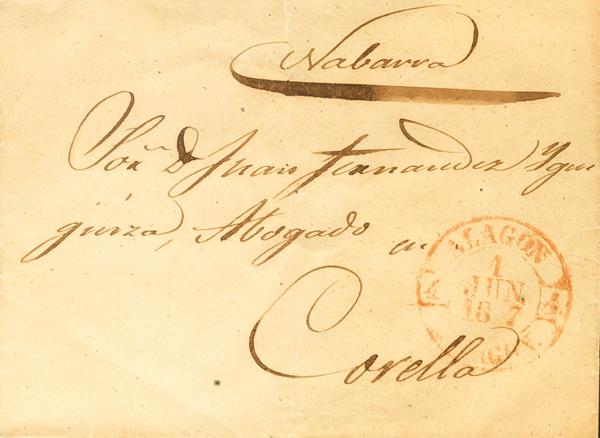 Nabarra
Sor. D. Juan Fernandez Ygui
guiza, Abogado en
Corella
ALAGON
1
JUN